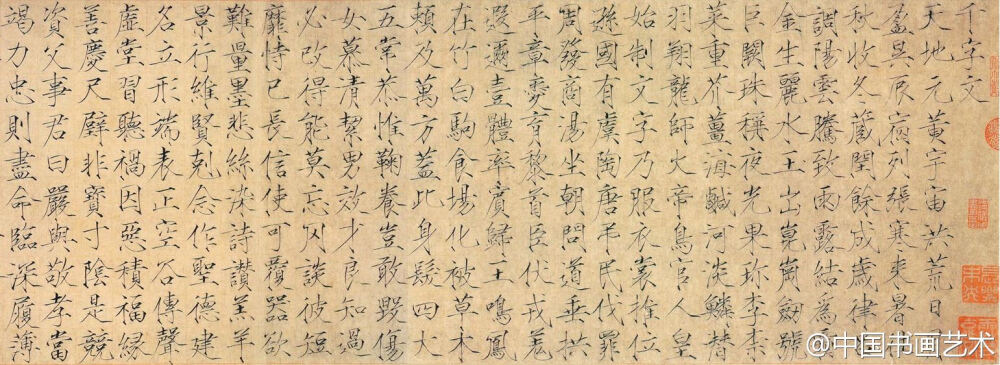 千字文
天地元黃宇宙洪荒日月
盈昃辰宿列張寒來暑往
秋收冬藏閏餘成歲律呂
調陽雲騰致雨露結為霜
金生麗水玉出崑崗劒號
巨闕珠稱夜光果珍李柰
菜重芥薑海鹹河淡鱗替
羽翔龍師火帝鳥官人皇
始制文字乃服衣裳推位
遜國有虞陶唐弔民伐罪
周發商湯坐朝問道垂拱
平章愛育黎首臣伏戎羌
遐邇壹體率賓歸王鳴鳳
在竹白駒食場化被草木
賴及萬方蓋此身髮四大
五常恭惟鞠養豈敢毀傷
女慕清絜男效才良知過
必改得能莫忘罔談彼短
靡恃己長信使可覆器欲
難量墨悲絲染詩讚羔羊
景行維賢剋念作聖德建
名立形端表正空谷傳聲
虛堂習聽禍因惡積福緣
善慶尺璧非寶寸陰是競
資父事君曰嚴與敬孝當
竭力忠則盡命臨深履薄
@中国书画艺术